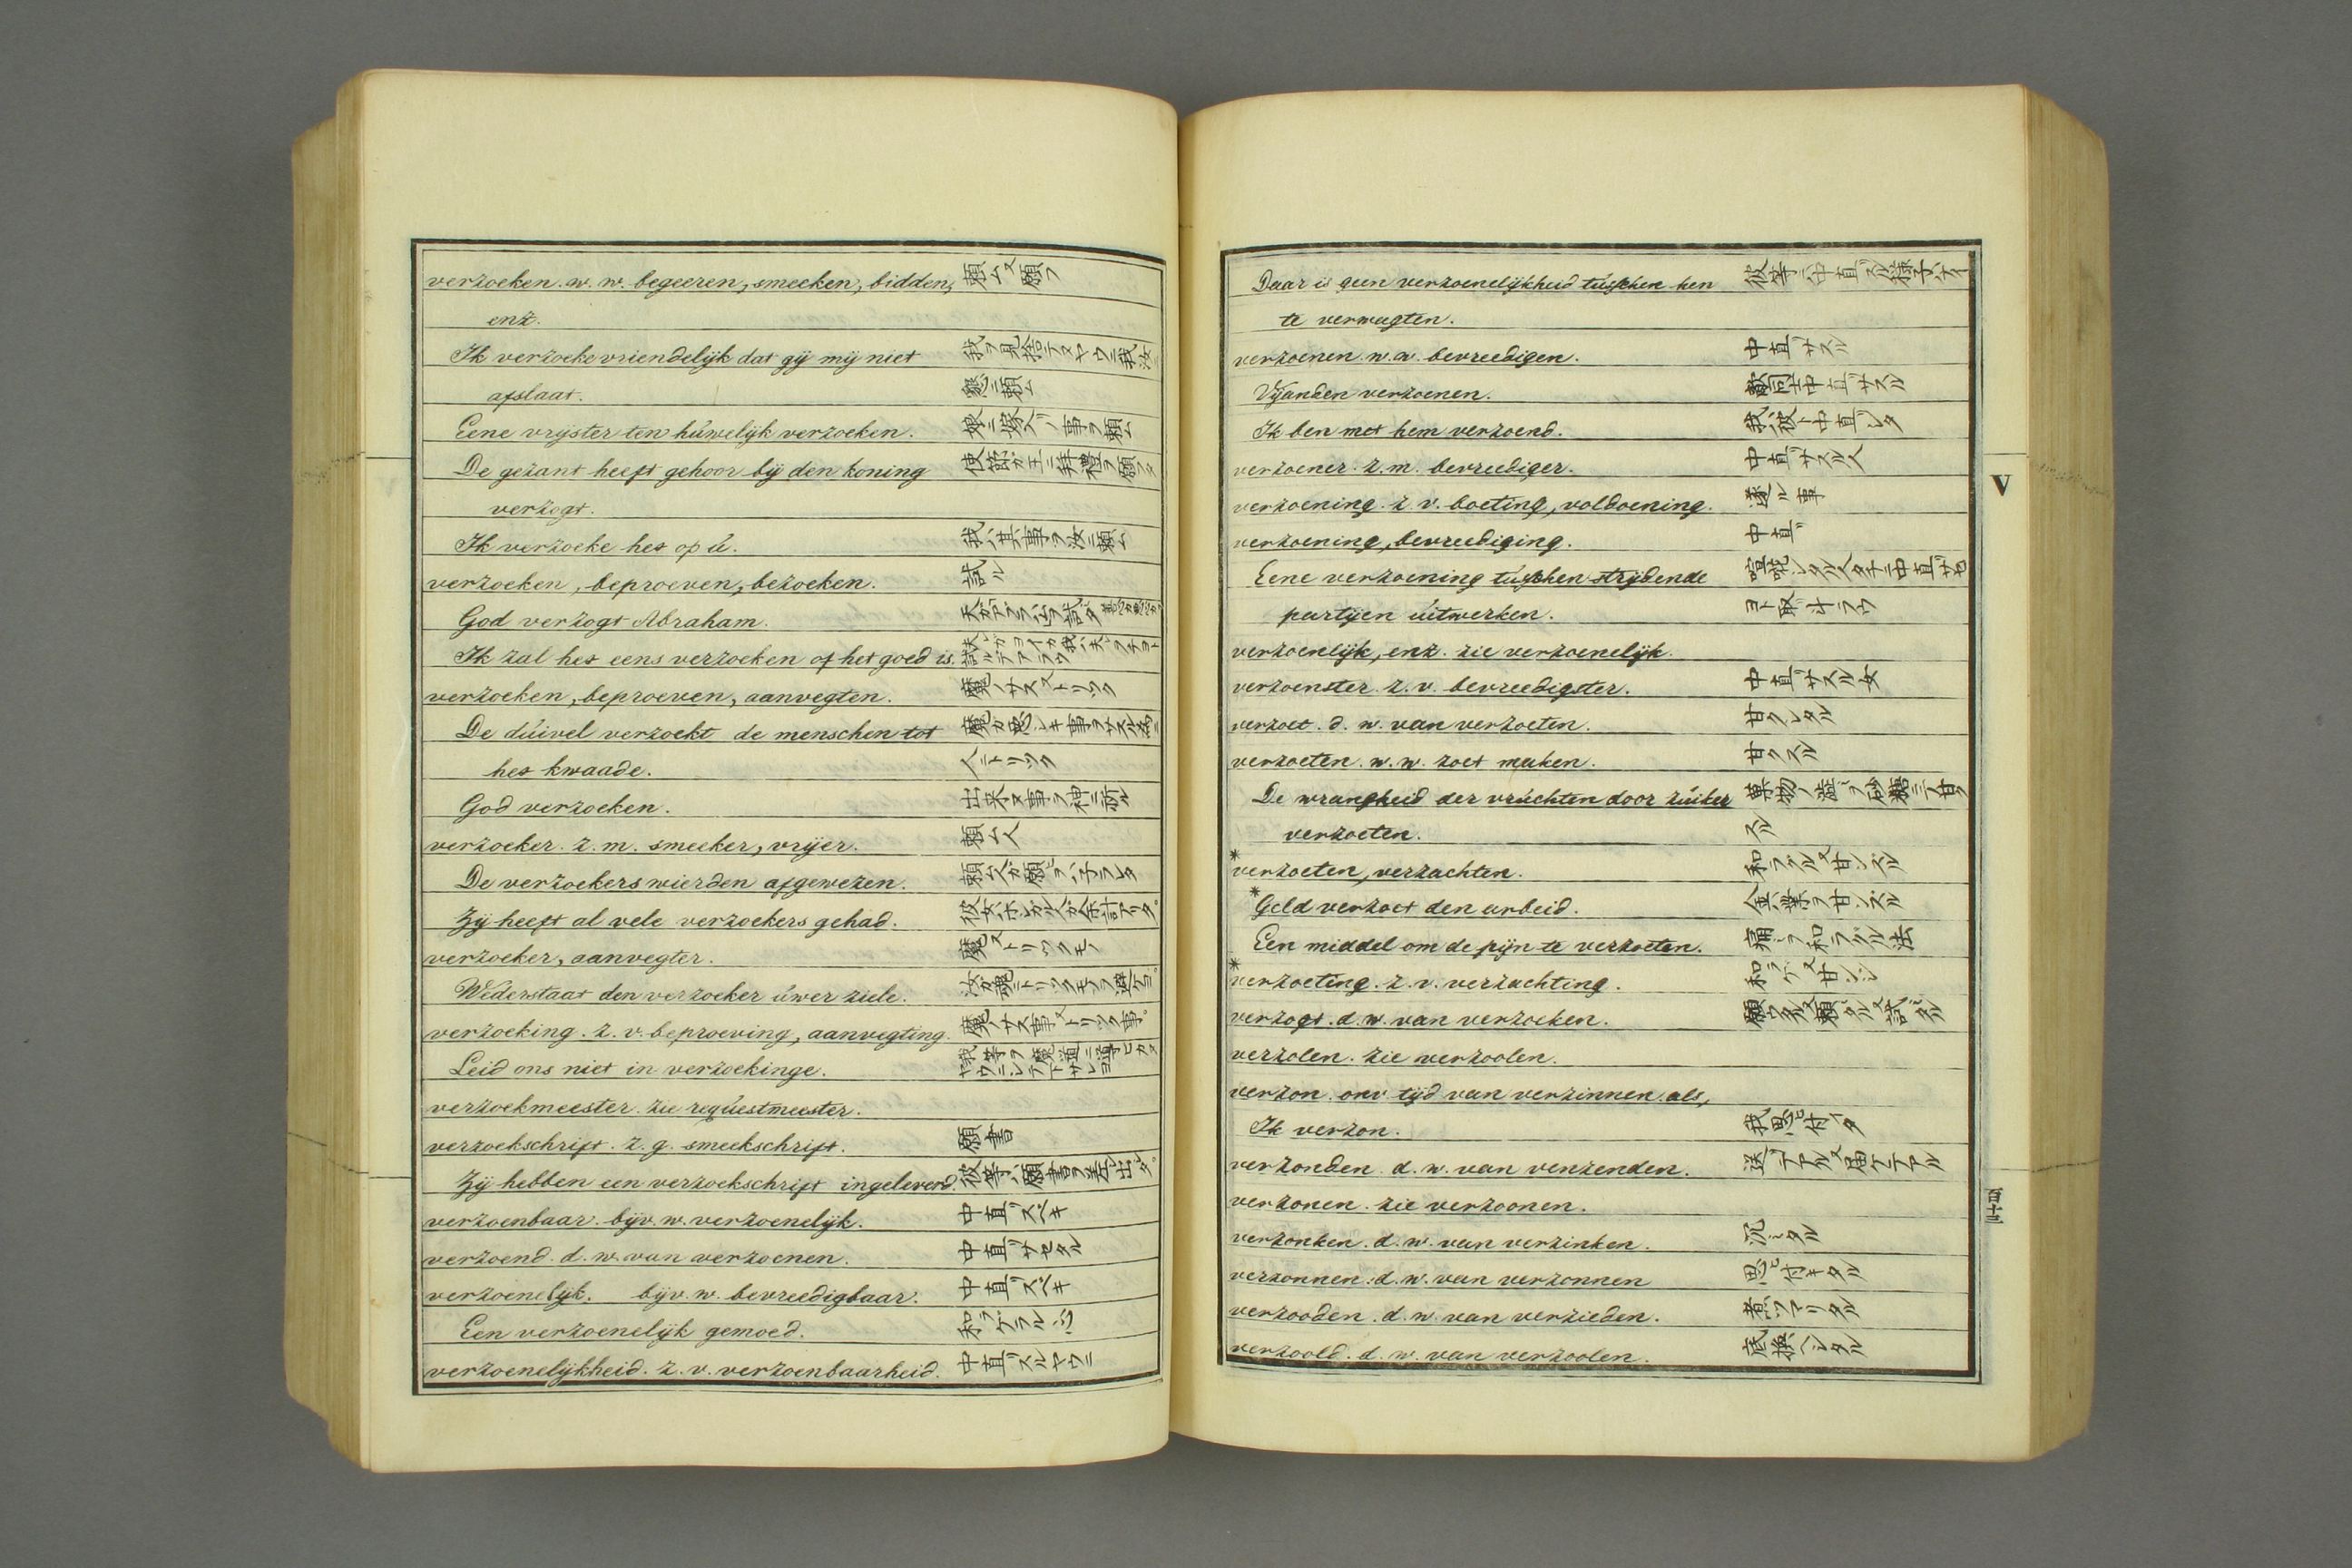 verzoeken. w. w. begeeren, smeeken, bidden, 頼ム又願フ
enz.
Ik verzoeke vriendelijk dat gij mij niet 我ヲ見捨テヌヤウニ我汝ニ
afslaat. 懇ニ頼ム
Eene vrijster ten húwelijk verzoeken. 娘ニ嫁入ノ事ヲ頼ム
De gezant heeft gehoor bij den koning 使節ガ王ニ拜禮ヲ願フタ
verzogt.
Ik verzoeke het op ú. 我ハ其事ヲ汝ニ頼ム
verzoeken, beproeven, bezoeken. 試ル
God verzogt Abraham.
Ik zal het eens verzoeken of het goed is.
verzoeken, beproeven, aanvegten. 魔ノサス又トリツク
De dúivel verzoekt de menschen tot 魔ガ悪シキ事ヲサスル為ニ
het kwaade. 人ニトリツク
God verzoeken. 出来ヌ事ヲ神ニ祈ル
verzoeker. z. m. smeeker, vrijer. 頼ム人
De verzoekers wierden afgewezen.
Zij heeft al vele verzoekers gehad.
verzoeker, aanvegter. 魔又トリツクモノ
Wéderstaat den verzoeker úwer ziele.
verzoeking. z. v. beproeving, aanvegting. 魔ノサス事又トリツク事
Leid ons niet in verzoekinge. 我等ヲ魔道ニ導ビカヌ
ヤウニシテ下サレヨ
verzoekmeester. zie reqúestmeester.
verzoekschrift. z. g. smeekschrift. 願書
Zij hebben een verzoekschrift ingeleverd. 彼等ハ願書ヲ差出シタ
verzoenbaar. bijv. w. verzoenelijk. 中直リスベキ
verzoend. d. w. van verzoenen. 中直リサセタル
verzoenelijk. bijv. w. bevreedigbaar. 中直リスベキ
Een verzoenelijk gemoed. 和ラゲラルル心
verzoenelijkheid. z. v. verzoenbaarheid. 中直リスルヤウニ
Daar is geen verzoenelijkheid tússchen hen 彼等ニ中直リスル様子ハナイ
te verwagten.
verzoenen. w. w. bevreedigen. 中直リサスル
Vijanden verzoenen. 敵同士中直リサスル
Ik ben met hem verzoend. 我ハ彼ト中直リシタ
verzoener. z. m. bevreediger. 中直リサスル人
verzoening. z. v. boeting, voldoening. 遂ル事
verzoening, bevreediging. 中直リ
Eene verzoening tússchen strijdende 喧嘩シタル人タチニ中直リサセ
partijen úitwerken. ヨト取リ斗ラウ
verzoenlijk, enz. zie verzoenelijk.
verzoenster. z. v. bevreedigster. 中直リサスル女
verzoet. d. w. van verzoeten. 甘クシタル
verzoeten. w. w. zoet maken. 甘クスル
De wrangheid der vrúchten door zúiker 菓物ノ澁ミヲ砂糖ニテ甘ク
verzoeten. スル
* verzoeten, verzachten. 和ラグル又甘ンズル
* Geld verzoet den arbeid. 金ハ業ヲ甘ンズル
Een middel om de pijn te verzoeten. 痛ミヲ和ラグル法
* verzoeting. z. v. verzachting. 和ラゲ又甘ンジ
verzogt. d. w. van verzoeken.
verzolen. zie verzoolen.
verzon. onv. tijd van verzinnen. als,
Ik verzon. 我思ヒ付イタ
verzonden. d. w. van venzenden. 送リテアル又届ケテアル
verzonen. zie verzoonen.
verzonken. d. w. van verzinken. 沉ミタル
verzonnen. d. w. van verzonnen 思ヒ付キタル
verzooden. d. w. van verzieden. 煮ツマリタル
verzoold. d. w. van verzoolen. 底換ヘシタル
V